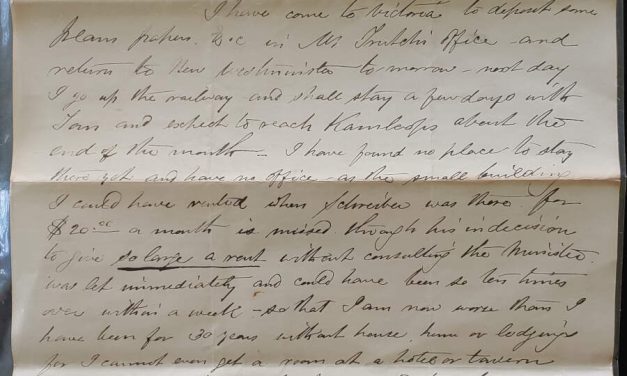 I have come to Victoria to deposit some
Plans papers &c in Mr Trutch's Office - and
return to New Westminster to morrow - next day
I go up the railway and shall stay a few days with
Tom and expect to reach Kamloops about the
end of the month - I have found no place to stay
there yet and have no office - as the small building
I could have rented when Schreiber was there for
$20.00 a month is missed through his indecision
to give so large a rent without consulting the Minister.
was let immediately and could have been so ten times
over within a week - so that I am now worse than I
have been for 30 years without house, home or lodgings
for I cannot even get a room at a hotel or tavern